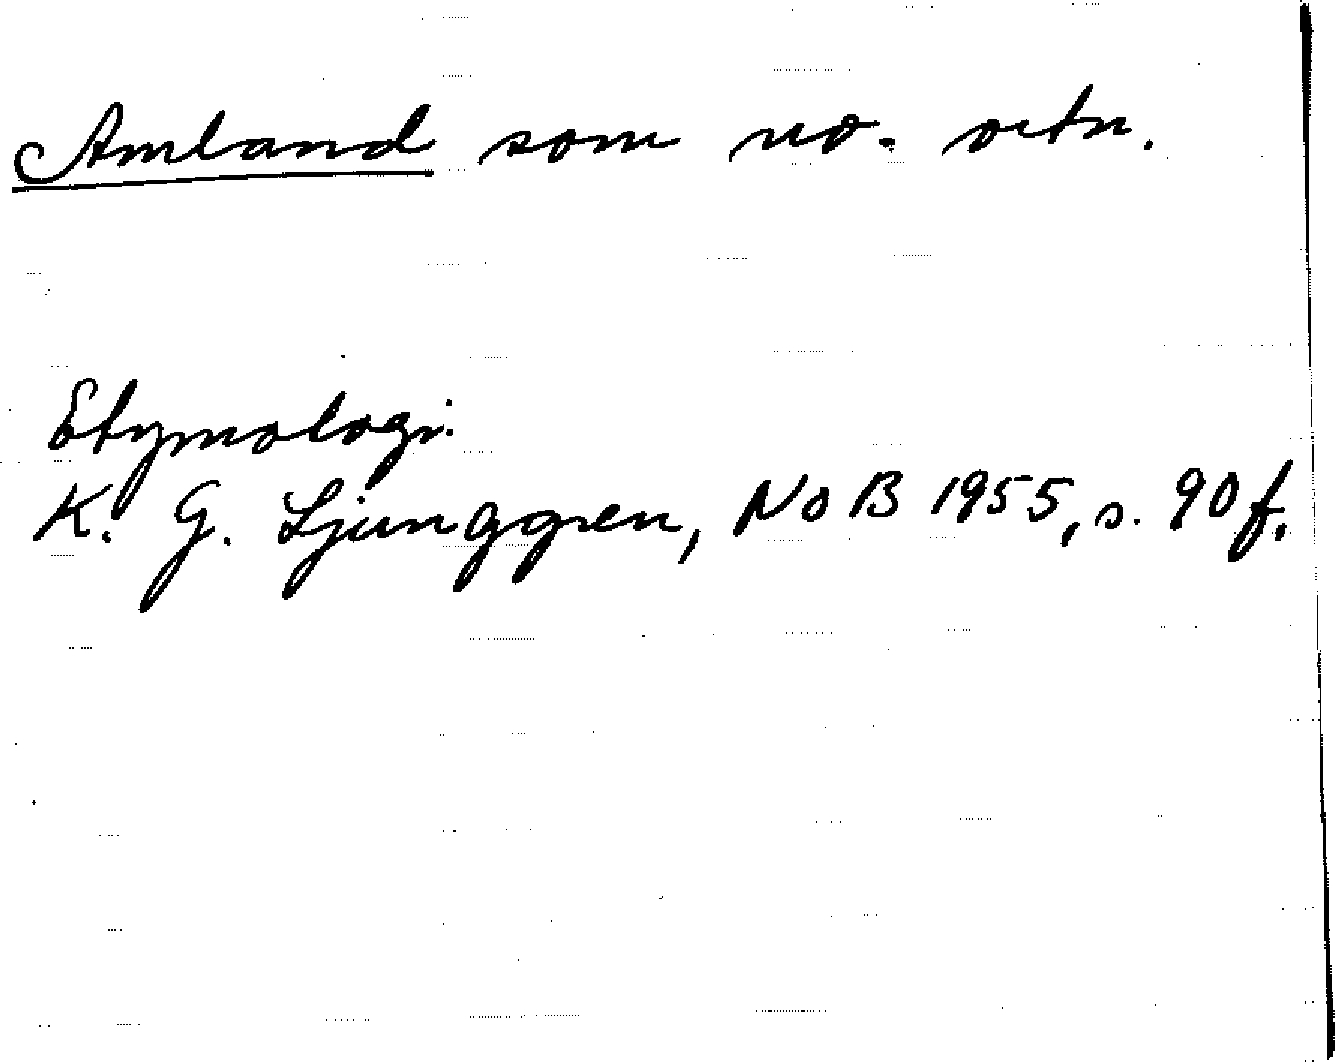 Amland som no. ortn.
Etymologi.
K. G. Ljunggren, NoB 1955, s. 90 f.